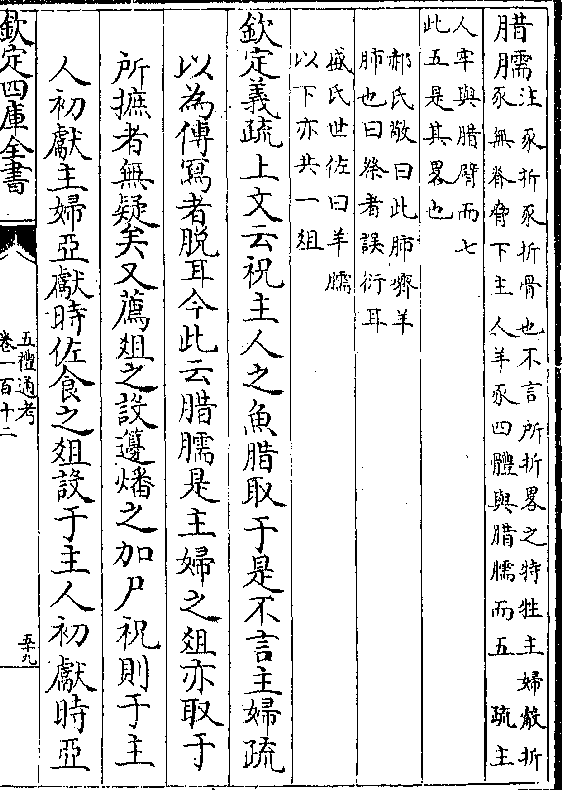 腊臑注豕折豕折骨也不言所折畧之特牲主婦觳折
豕無脊脅下主人羊豕四體與腊臑而五 疏主
人牢與腊臂而七
此五是其畧也
郝氏敬曰此肺嚌羊
肺也曰祭者誤衍耳
盛氏世佐曰羊臑
以下亦共一俎
欽定義疏上文云祝主人之魚腊取于是不言主婦疏
以為傳寫者脱耳今此云腊臑是主婦之俎亦取于
所摭者無疑矣又薦俎之設籩燔之加尸祝則于主
人初獻主婦亞獻時佐食之俎設于主人初獻時亞
欽定四庫全書
五禮通考
卷一百十二
五十九